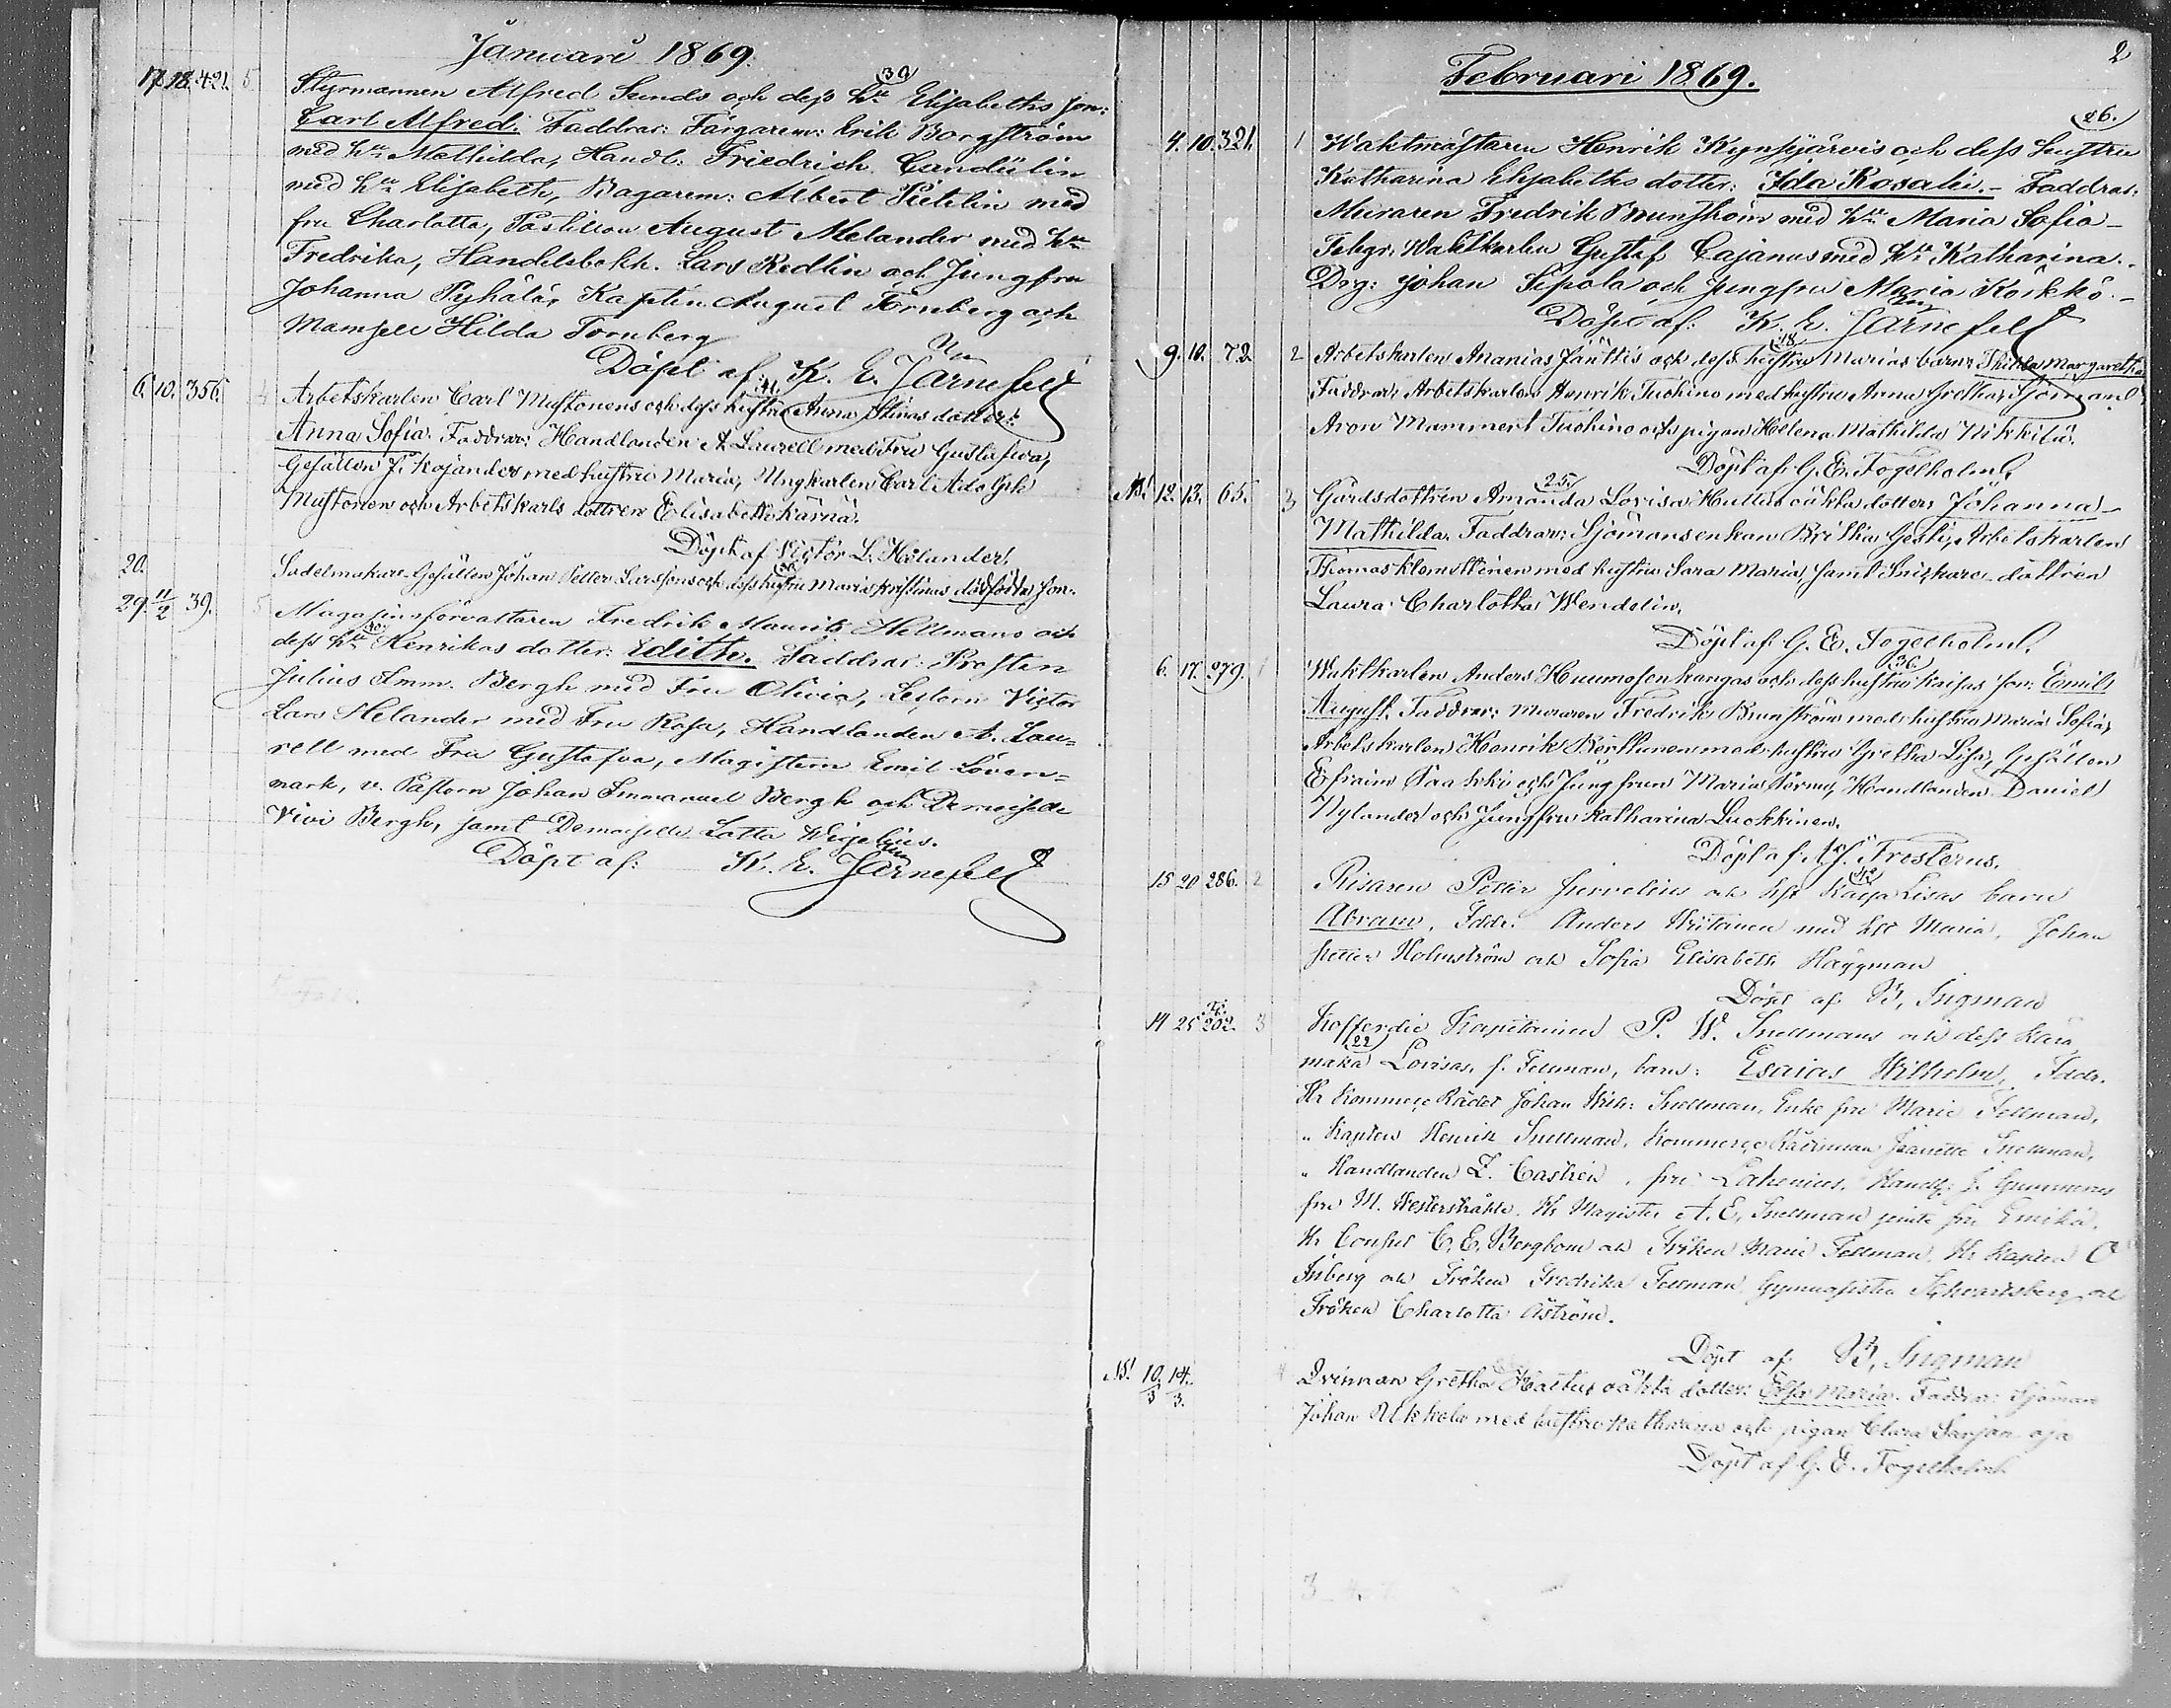 Januari 1869.
17. 18. 421. 5. Styrmannen Alfred Sunds och dess hu Elisabeths son:
39
Carl Alfred. Faddrar: Färgarem: Erik Borgström
med hu Mathilda, Handl. Friedrich
med hu Elisabeth, Bagarem: Albert Pietilin med
fru Charlotta, Påstillion August Melander med hu
Fredrika, Handelsbokh. Lars Redlin och Jungfru
Johanna Pyhälä, Kapten August Törnberg och
Mamsell Hilda Tornberg
Döpt af K. E. Järnefelt
6. 10. 356. 4 Arbetskarlen Carl Mustonens och dess hustru Anna Stinas dotter:
Anna Sofia. Faddrar: Handlanden A Laurell med Fru Gustafva,
Gesällen J. Kajander med hustru Maria, Ungkarlen Carl Adolph
Mustonen och Arbetskarls dottren Elisabeth Kärnä.
Döpt af Victor L. Helander.
20. Sadelmakare Gesällen Johan Petter Larssons och dess hustru Maria Kristinas dödfödda son.
29. 11/2 39. 5 Magasinsförvaltaren Fredrik Maurits Hellmans och
30
dess hu Henrikas dotter: Edith. Faddrar: Prosten
Julius Imm. Bergh med Fru Olivia, Lectorn Victor
Lars Helander med Fru Rosa, Handlanden A. Lau=
rell med Fru Gustafva, Magistern Emil Löven=
mark, v. Pastorn Johan Immanuel Bergh och Demoiselle
Vivi Bergh, samt Demoiselle Lotta Wegelius.
Döpt af: K. E. Järnefelt
2
Februari 1869.
26.
4. 10. 321. 1 Waktmästaren Henrik Kynsijärvis och dess hustru
Katharina Elisabeths dotter: Ida Rosalie. - Faddrar:
Muraren Fredrik Brunström med hu Maria Sofia -
Telegr. Waktkarlen Gustaf Cajanus med hu Katharina.
Drg: Johan Sipola och jungfru Maria Körkkö. -
Döpt af: K. E. Järnefelt
9. 10. 72. 2 Arbetskarlen Ananias Jänttis och dess hustru Marias barn: Thilda Margaretha
18.
Faddrar: Arbetskarlen Henrik Tuohino med hustru Anna Gretha, Sjöman
Aron Mammert Tuohino och pigan Helena Mathilda Nikkilä.
Döpt af G. E. Fogelholm.
No! 12. 13. 65. 3 Gårdsdottren Amanda Lovisa Huttus oäkta dotter: Johanna
25.
Mathilda. Faddrar: Sjömansenkan Britha Gesti, Arbetskarlen
Thomas Klemettinen med hustru Sara Maria, samt Snickare-dottren
Laura Charlotta Wendelin.
Döpt af G. E. Fogelholm.
6. 17. 279. 1 Waktkarlen Anders Huumosenkangas och dess hustru Kaisas son: Emil
36.
August. Faddrar: Muraren Fredrik Brunström med hustru Maria Sofia,
Arbetskarlen Henrik Kärkkinen med hustru Gretha Lisa, Gesällen
Efraim Saa och Jungfrun Maria, Handlanden Daniel
Nylander och Jungfru Katharina Luokkinen.
Döpt af: A. J. Frosterus.
15 20 286. 2 Risaren Petter och hst Kaisa Lisas barn
42
Abram. Fddr: Anders med hst Maria, Johan
Petter Holmström och Sofia Elisabeth Häggman
Döpt af B. Ingman
14 25 202. 3 Kofferdie Kapitainen P. W. Snellmans och dess kära
22
maka Lovisas, f. Fellman, barn: Esaias Wilhelm, Fddr.
Hr Kommerce Rådet Johan Wilh: Snellman, Enke fru Marie Fellman,
" Kapten Henrik Snellman, Kommerce Rådinnan Jeanette Snellman,
" Handlanden Z. Castrén, fru Lithenius, Handl: J. Gummerus
fru M. Westerstråhle. Hr Magister A. E. Snellman jemte fru Emilia.
Hr Consul C. E. Bergbom och Fröken Marie Fellman, Hr Kapten O
och Fröken Fredrika Fellman, Gymnasisten Schwartzberg och
Fröken Charlotta Åström.
Döpt af B. Ingman
No! 10/3 14/3. 4 Qvinnan Gretha oäkta dotter: Elsa Maria. Faddrar: Sjöman
Johan Ukkola med hustru Katharina och pigan Clara Sarjanoja
Döpt af G. E. Fogelholm